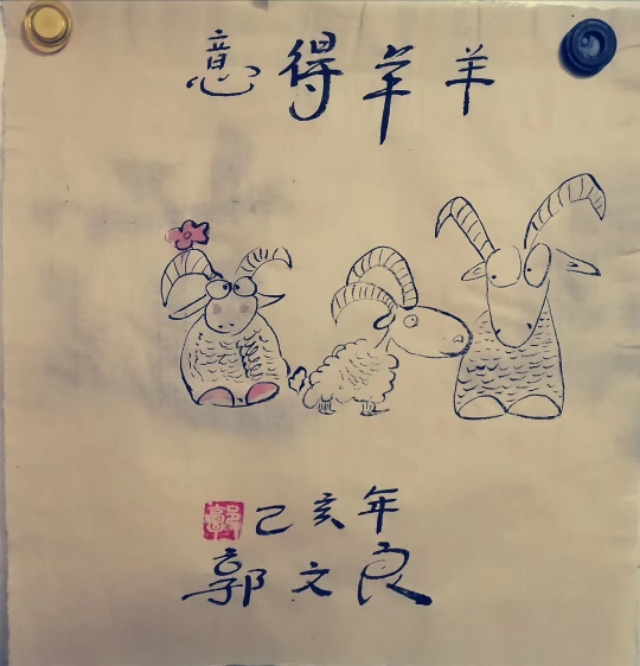 羊羊得意
郭
己亥年
郭文良